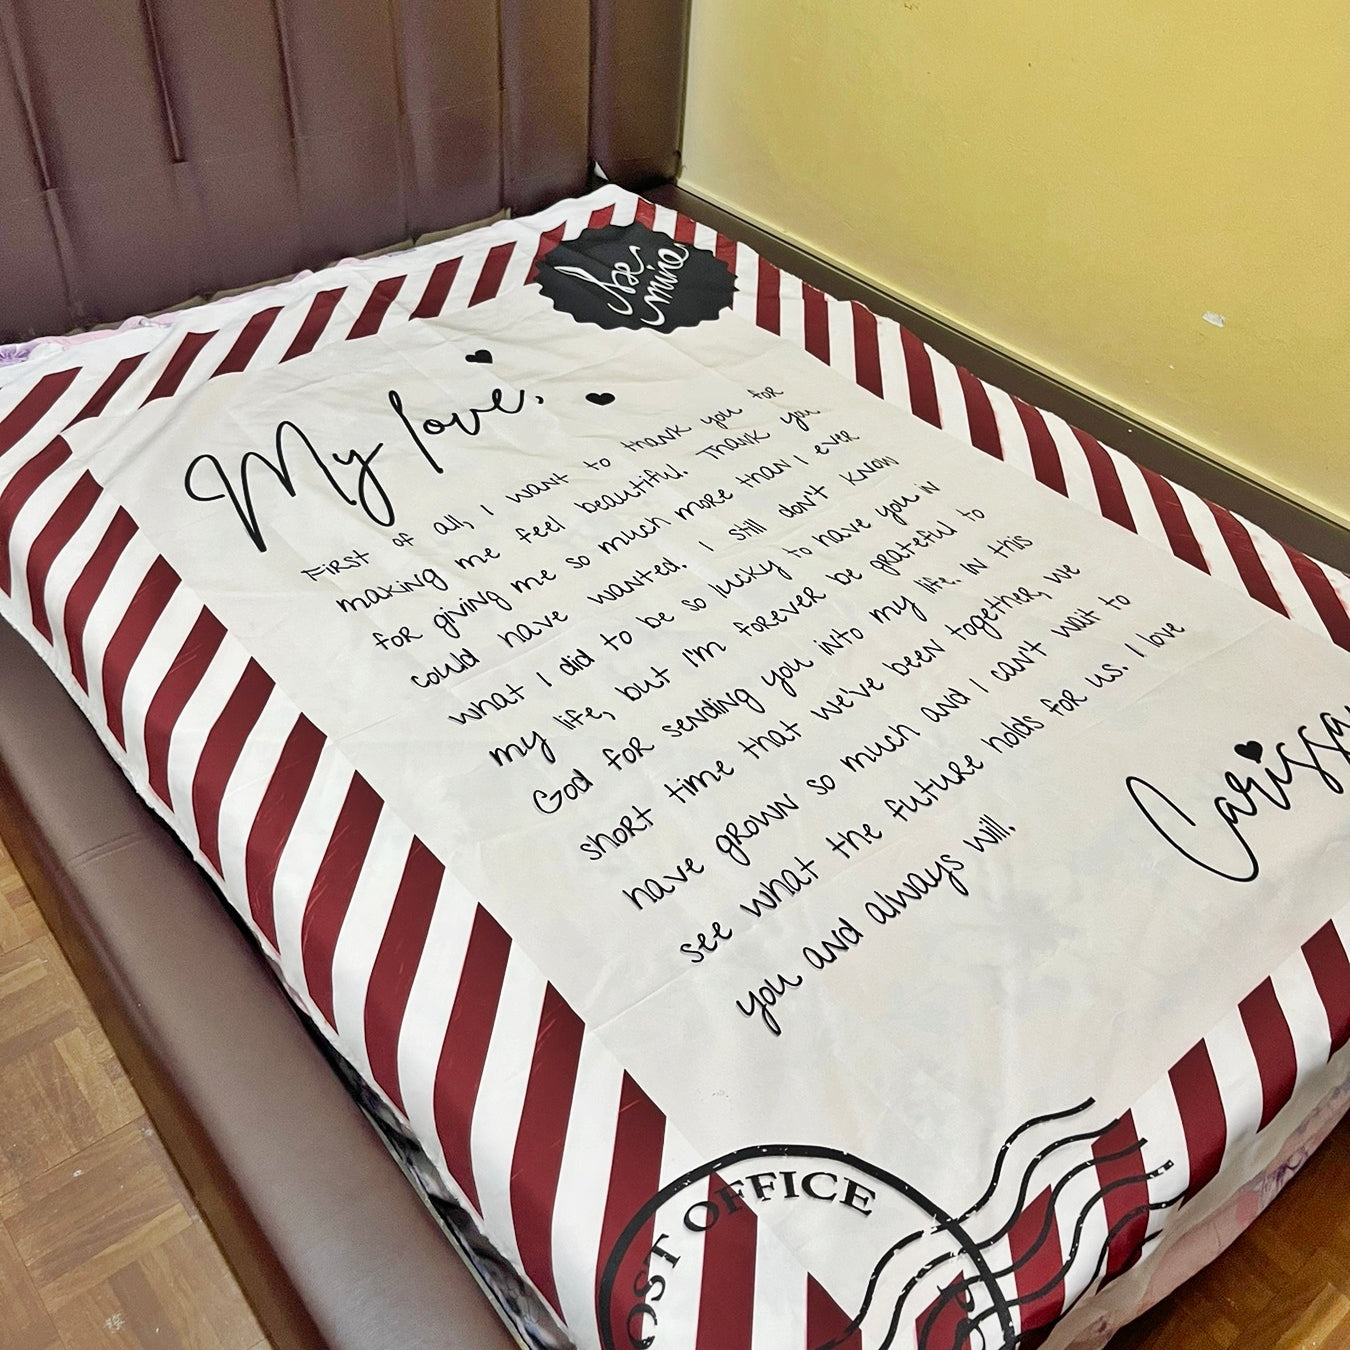 be
mine
My love,
First of all, I want to thank you for
making me feel beautiful. Thank you
for giving me so much more than I ever
could have wanted. I still don't know
what I did to be so lucky to have you in
my life, but I'm forever be grateful to
God for sending you into my life. In this
short time that we've been together, we
have grown so much and I can't wait to
see what the future holds for us. I love
you and always will.
Carissa
POST OFFICE